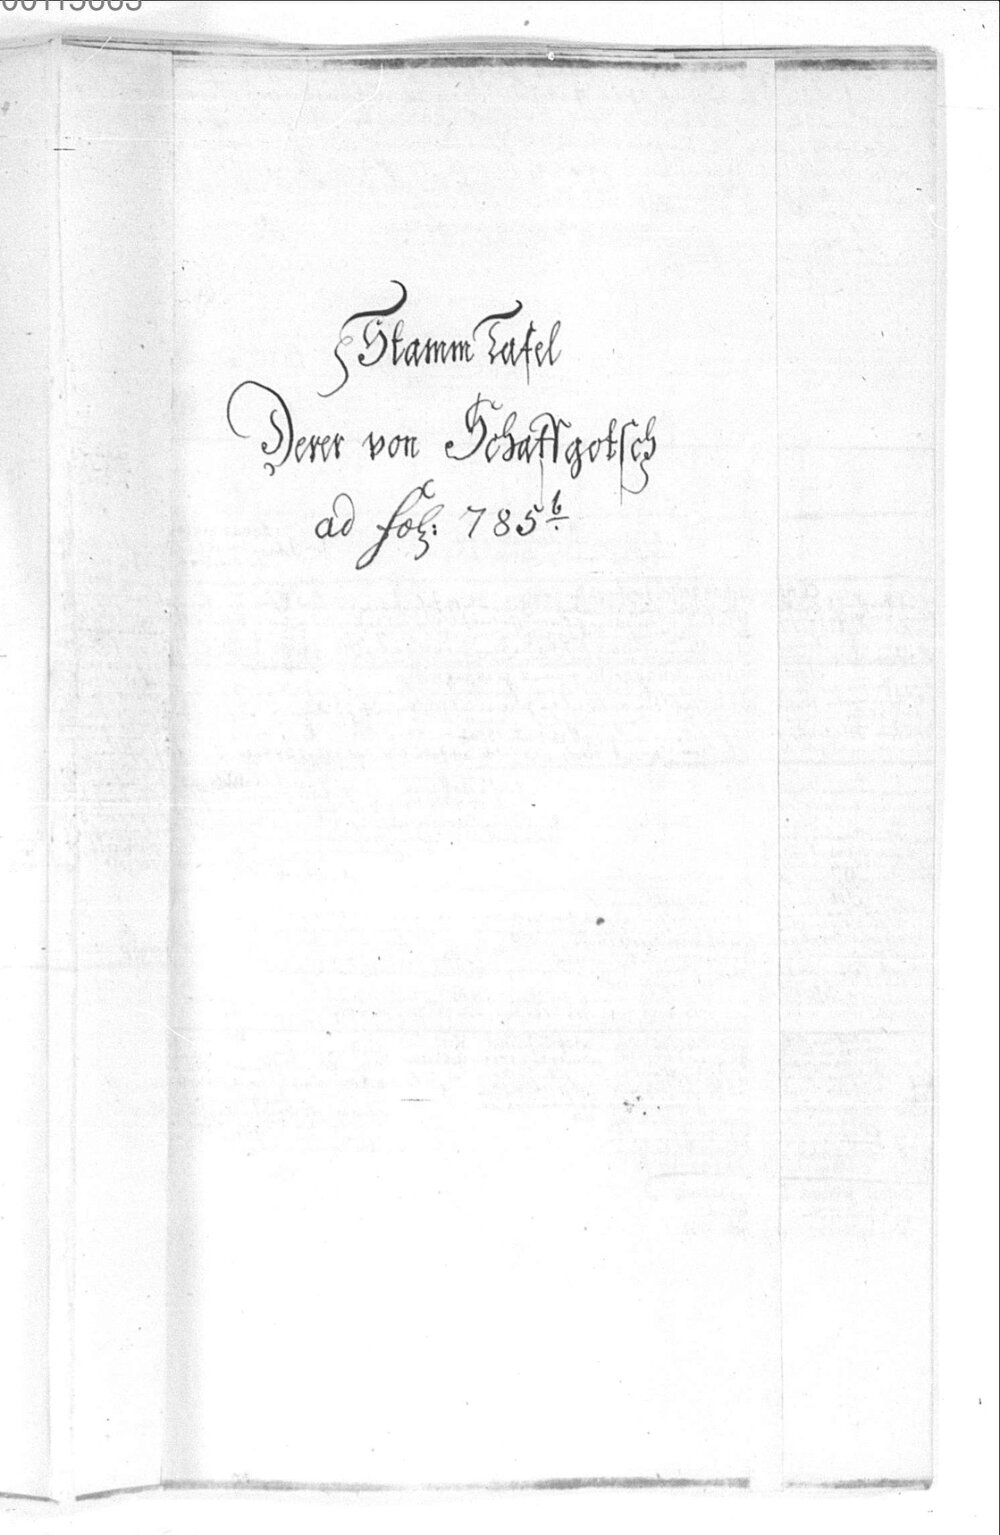 Stamm Tafel
Derer von Schaffgotsch
ad fol: 785 b